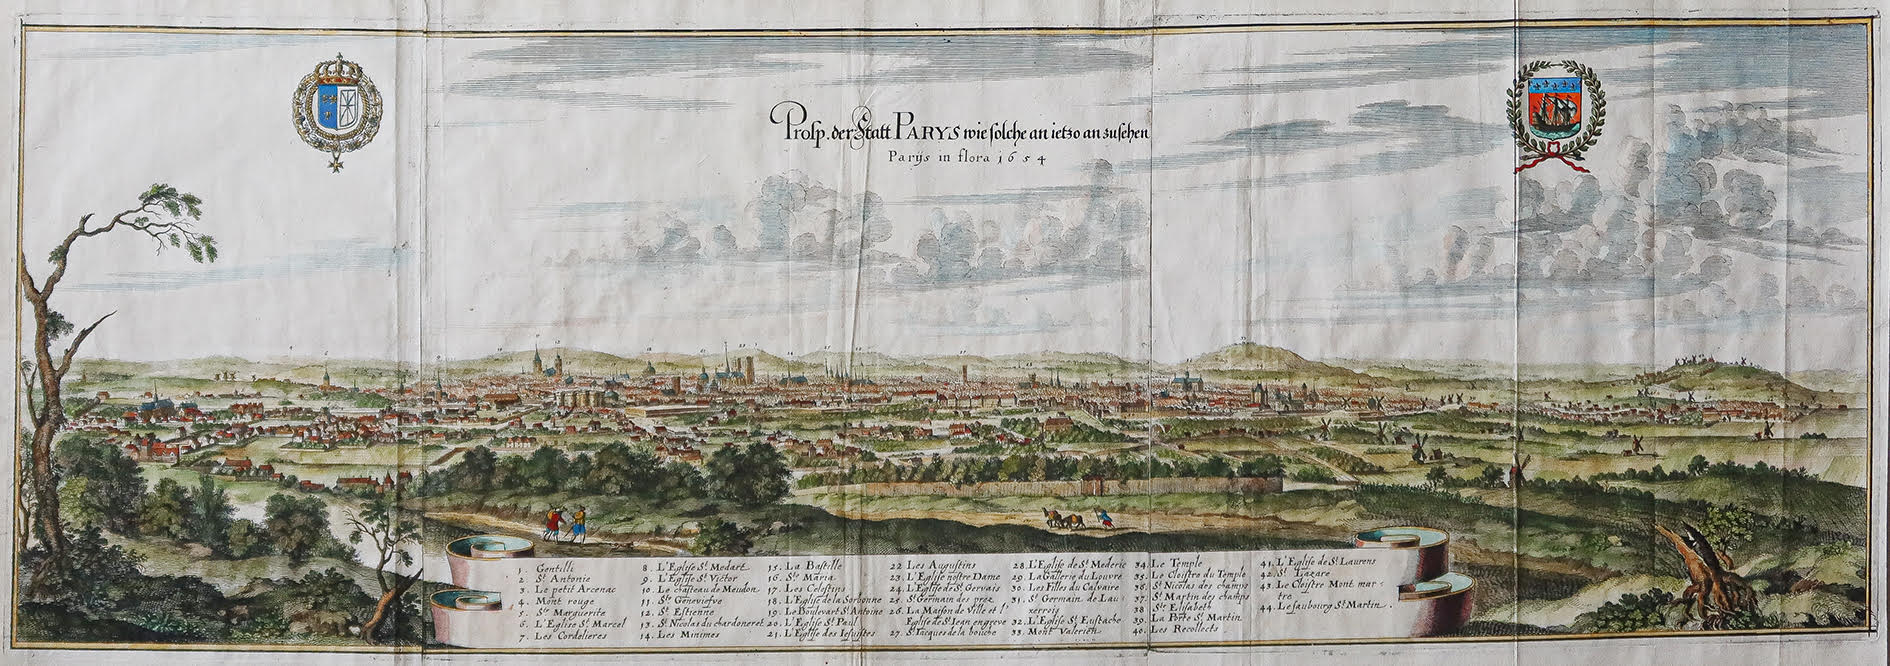 Prosp. der Statt PARYS wie solche an ietzo anzusehen
Parijs in flora 1654
1. Gentilli
2. St. Antonie
3. Le petit Arcenac
4. Mont rouge
5. Ste. Marguerite
6. L'Eglise St. Marcel
7. Les Cordelieres
8. L'Eglise St. Medart
9. L'Eglise St. Victor
10. Le chateau de Meudon
11. Ste. Geneviefve
12. St. Estienne
13. St. Nicolas du chardoneret
14. Les Minimes
15. La Bastille
16. Ste. Maria
17. Les Celestins
18. L'Eglise de la Sorbonne
19. Le Boulevart St. Antoine
20. L'Eglise St. Paul
21. L'Eglise des Iesuistes
22 Les Augustins
23. L'Eglise nostre Dame
24. L'Eglise de St. Gervais
25. St. Germain des prez
26. La Maison de Ville et l'
Eglise de St. Iean en greve
27. St. Iacques de la bouche
28. L'Eglise de St. Mederic
29. La Gallerie du Louvre
30. Les Filles du Calvaire
31. St. Germain de Lau-
xerrois
32. L'Eglise St. Eustache
33. Mont Valerien
34. Le Temple
35. Le Cloistre du Temple
36. St. Nicolas des champs
37. St. Martin des champs
38 St. Elisabeth
39. La Porte St. Martin
40. Les Recollects
41. L'Eglise de St. Laurens
42. St. Lazare
43. Le Cloistre Mont mar-
tre
44. Le faubourg St. Martin.